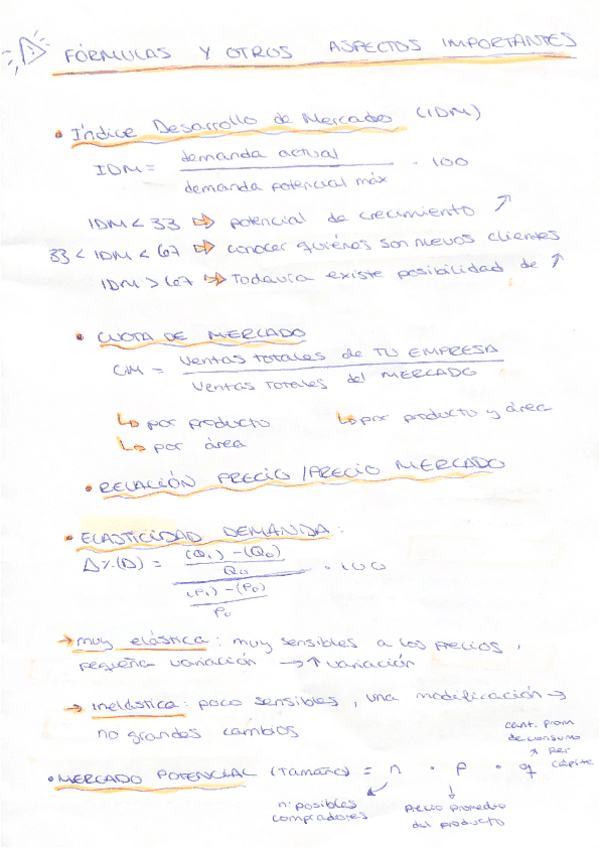 FÓRMULAS Y OTROS ASPECTOS IMPORTANTES
• Índice Desarrollo de Mercado (IDM)
IDM = demanda actual / demanda potencial máx · 100
IDM < 33 ⇒ potencial de crecimiento ↗
33 < IDM < 67 ⇒ conocer quiénes son nuevos clientes
IDM > 67 ⇒ Todavía existe posibilidad de ↗
• CUOTA DE MERCADO
CM = Ventas totales de TU EMPRESA / Ventas totales del MERCADO
↳ por producto ↳ por producto y área
↳ por área
• RELACIÓN PRECIO / PRECIO MERCADO
• ELASTICIDAD DEMANDA:
Δ%(D) = (Q₁) - (Q₀) / Q₀ / (P₁) - (P₀) / P₀ · 100
→ muy elástica: muy sensibles a los precios,
pequeña variación → ↑ variación
→ inelástica: poco sensibles, una modificación →
no grandes cambios
• MERCADO POTENCIAL (Tamaño) = n · p · q
nº posibles compradores
precio promedio del producto
cant. prom de consumo per cápita